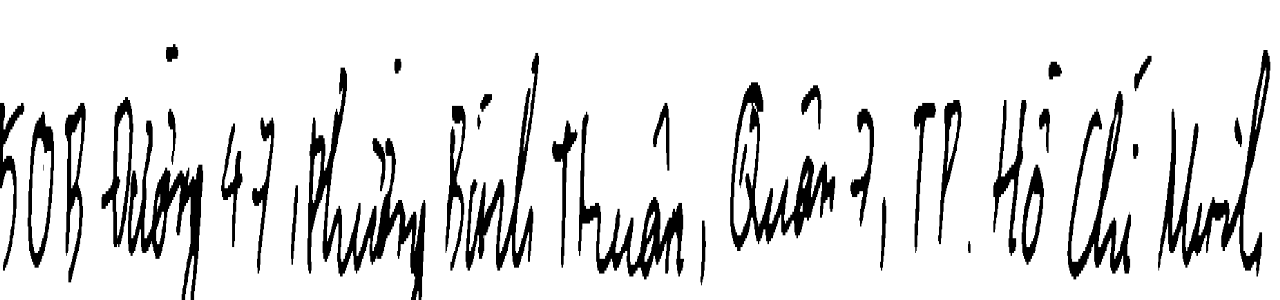 KDB Đường 47, Phường Bình Thuận, Quận 7, TP. Hồ Chí Minh